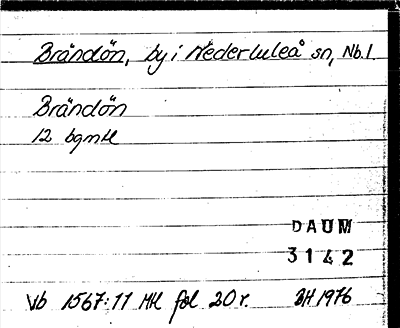 Brändön, by i Nederluleå sn, Nb. l.
Brändön
12 bgmtl
DAUM
3142
Vb 1567:11 Mtl fol 20 r. BH 1976